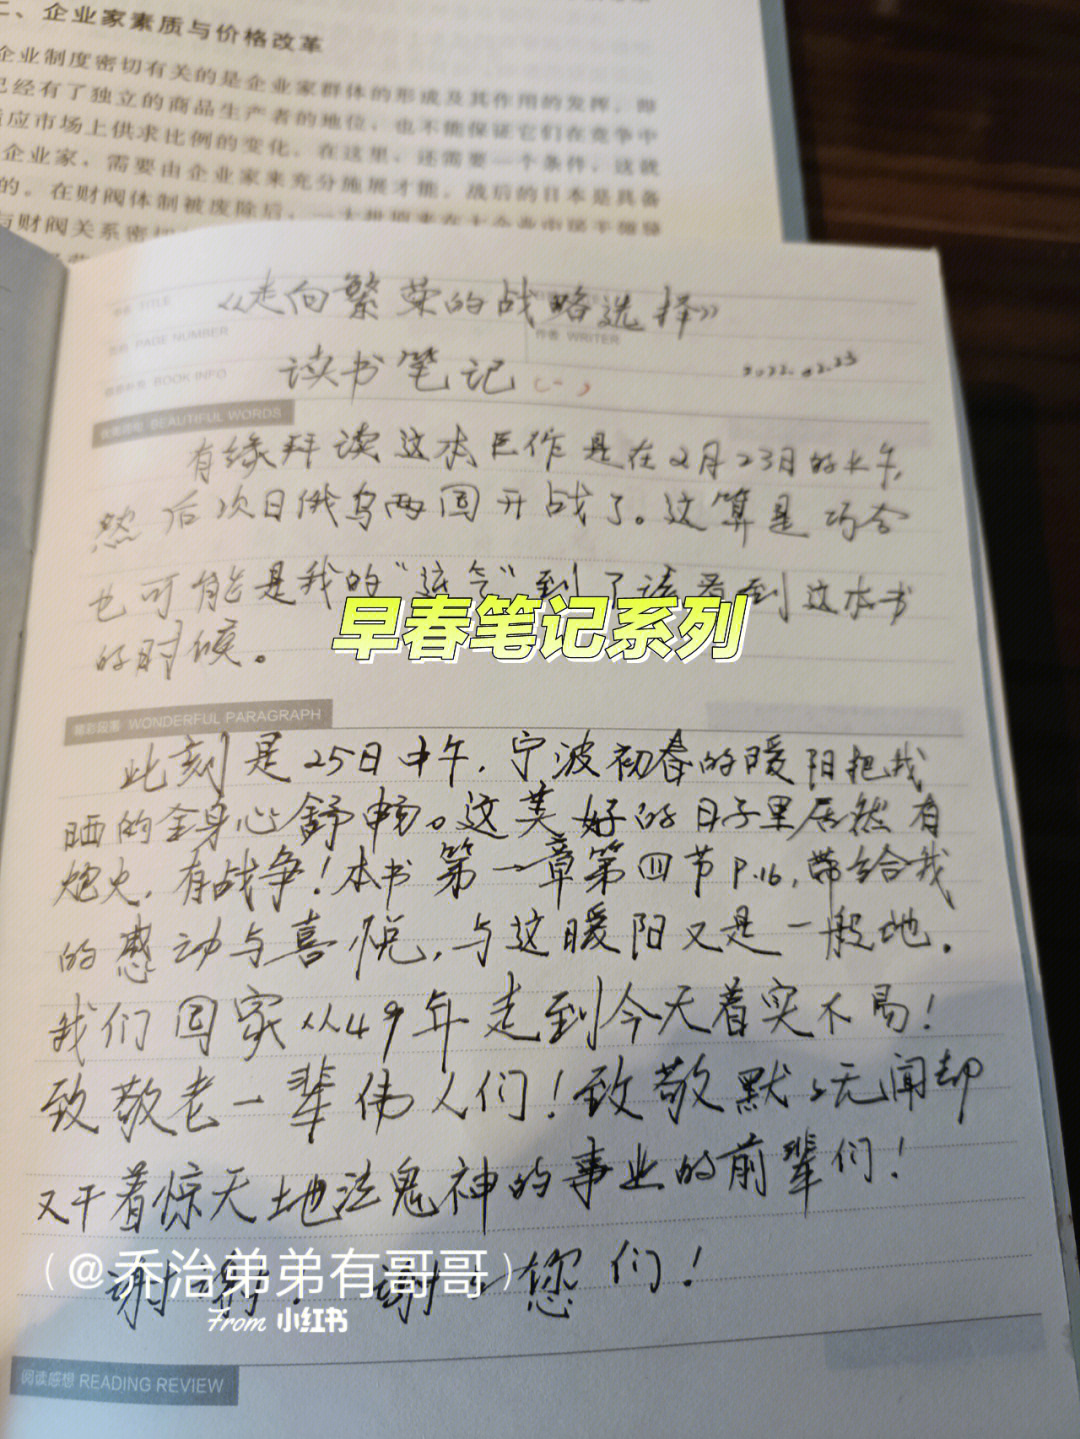 二、企业家素质与价格改革
企业制度密切有关的是企业家群体的形成及其作用的发挥，即
已经有了独立的商品生产者的地位，也不能保证它们在竞争中
适应市场上供求比例的变化。在这里，还需要一个条件，这就
企业家，需要由企业家来充分施展才能。战后的日本是具备
的。在财阀体制被废除后，一大批原来在大企业中居于领导
与财阀关系密切
TITLE
《走向繁荣的战略选择》
PAGE NUMBER
作者 WRITER
读书笔记（一）
2022.02.25
BOOK INFO
BEAUTIFUL WORDS
有缘拜读这本巨作是在2月23日的下午，
然后次日俄乌两国开战了。这算是巧合
也可能是我的“运气”到了该看到这本书
早春笔记系列
的时候。
精彩段落 WONDERFUL PARAGRAPH
此刻是25日中午，宁波初春的暖阳把我
晒的全身心舒畅。这美好的日子里居然有
炮火，有战争！本书第一章第四节P.16，带给我
的感动与喜悦，与这暖阳又是一般地。
我们国家从49年走到今天着实不易！
致敬老一辈伟人们！致敬默々无闻却
又干着惊天地泣鬼神的事业的前辈们！
谢谢！谢々您们！
（@乔治弟弟有哥哥）
From 小红书
阅读感想 READING REVIEW